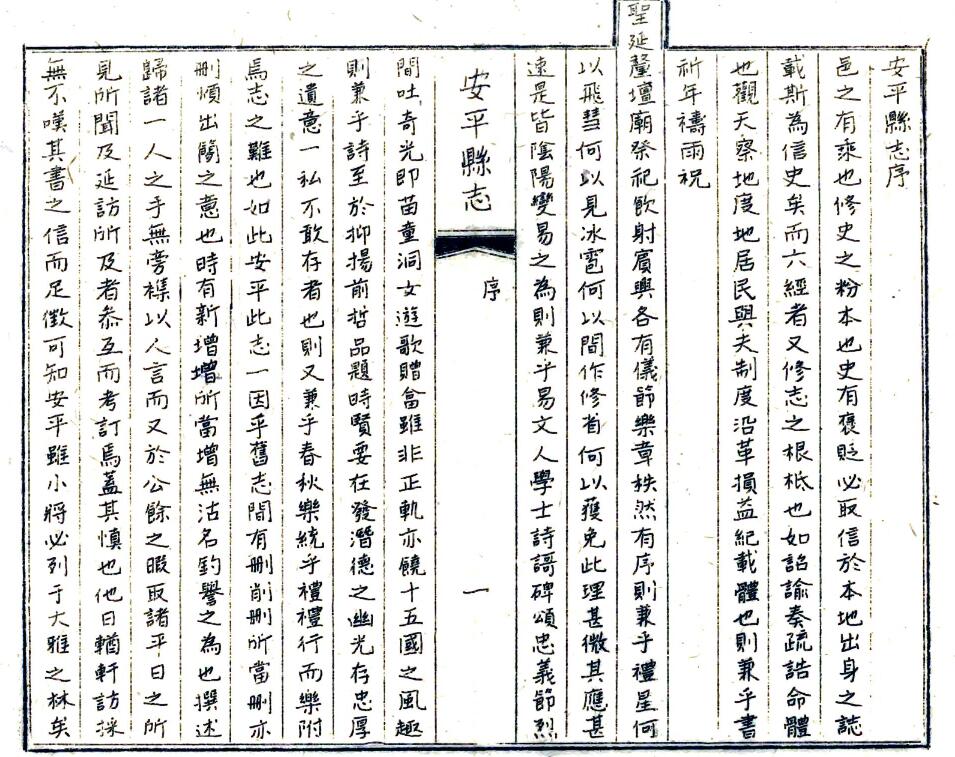 安平縣志序
邑之有乘也修史之粉本也史有褒貶必取信於本地出身之誌
載斯為信史矣而六經者又修志之根柢也如詔諭奏疏誥命體
也觀天察地度地居民與夫制度沿革損益紀載體也則兼乎書
祈年禱雨祝
聖延釐壇廟祭祀飲射賓興各有儀節樂章秩然有序則兼乎禮星何
以飛彗何以見冰雹何以間作修省何以獲免此理甚微其應甚
遠是皆陰陽變易之為則兼乎易文人學士詩謌碑頌忠義節烈
安平縣志
序
一
間吐奇光即苗童洞女遊歌贈畣雖非正軌亦饒十五國之風趣
則兼乎詩至於抑揚前哲品題時賢要在發潛德之幽光存忠厚
之遺意一私不敢存者也則又兼乎春秋樂統乎禮禮行而樂附
焉志之難也如此安平此志一因乎舊志間有刪削刪所當刪亦
刪煩出簡之意也時有新增增所當增無沽名釣譽之為也撰述
歸諸一人之手無旁襍以人言而又於公餘之暇取諸平日之所
見所聞及延訪所及者叅互而考訂焉蓋其慎也他日輶軒訪採
無不嘆其書之信而足徵可知安平雖小將必列于大雅之林矣